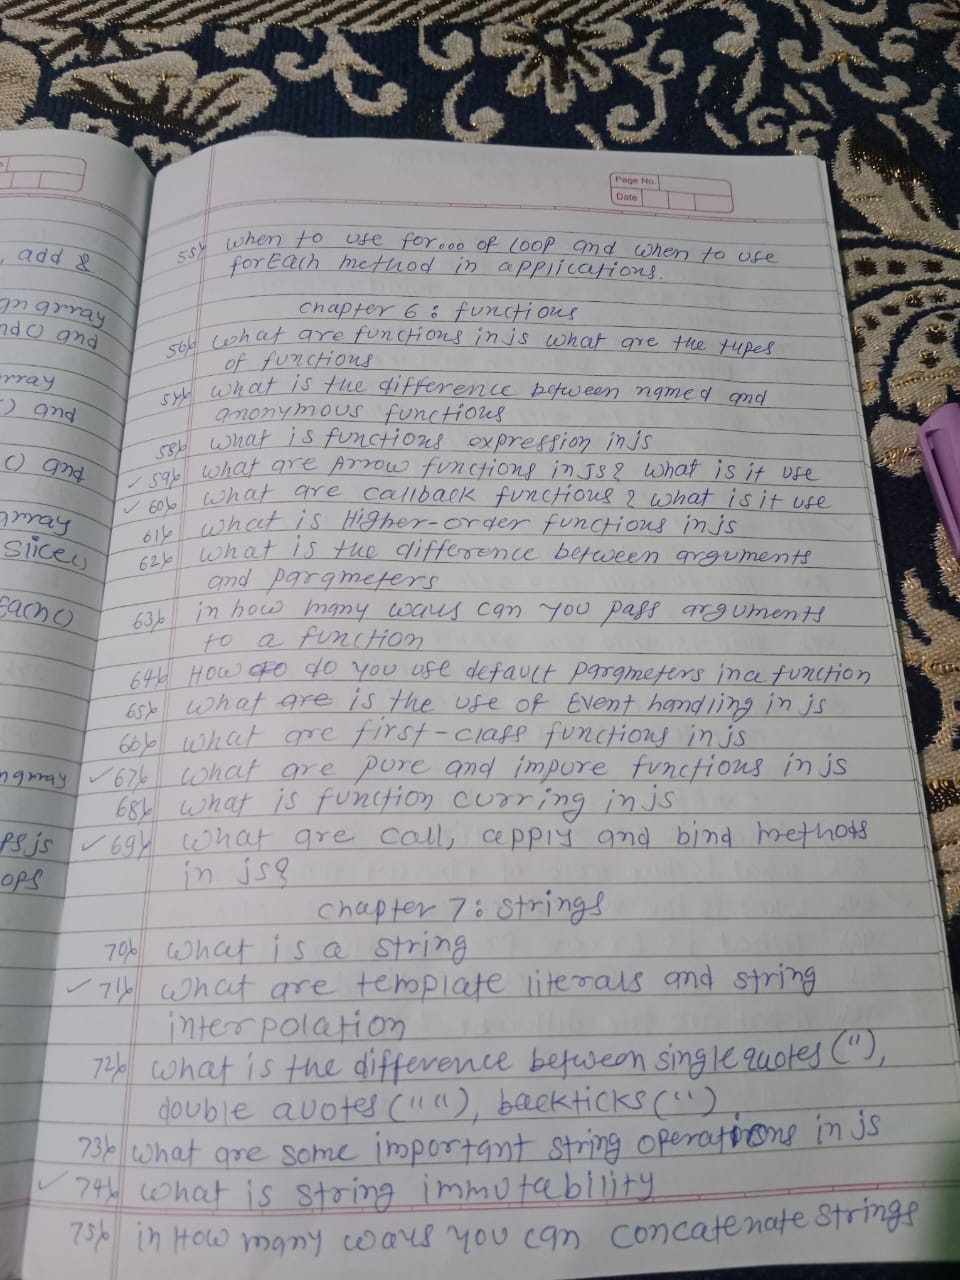 , add &
an array
nd() and
rray
() and
() and
array
Slice()
Each()
array
ps js
ops
Page No.
Date
55) when to use for... of loop and when to use
forEach method in applications.
chapter 6 : functions
56) what are functions in js what are the types
of functions
57) what is the difference between named and
anonymous functions
58) what is functions expression in js
✓ 59) what are Arrow functions in JS? what is it use
✓ 60) what are callback functions ? what is it use
61) what is Higher-order functions in js
62) what is the difference between arguments
and parameters
63) in how many ways can you pass arguments
to a function
64) How do you use default parameters in a function
65) what are is the use of Event handling in js
66) what are first-class functions in js
✓ 67) what are pure and impure functions in js
68) what is function curring in js
✓ 69) what are call, apply and bind methods
in js?
chapter 7 : strings
70) what is a string
✓ 71) what are template literals and string
interpolation
72) what is the difference between single quotes (''),
double quotes (" "), backticks (``)
73) what are some important string operations in js
✓ 74) what is string immutability
75) in How many ways you can concatenate strings